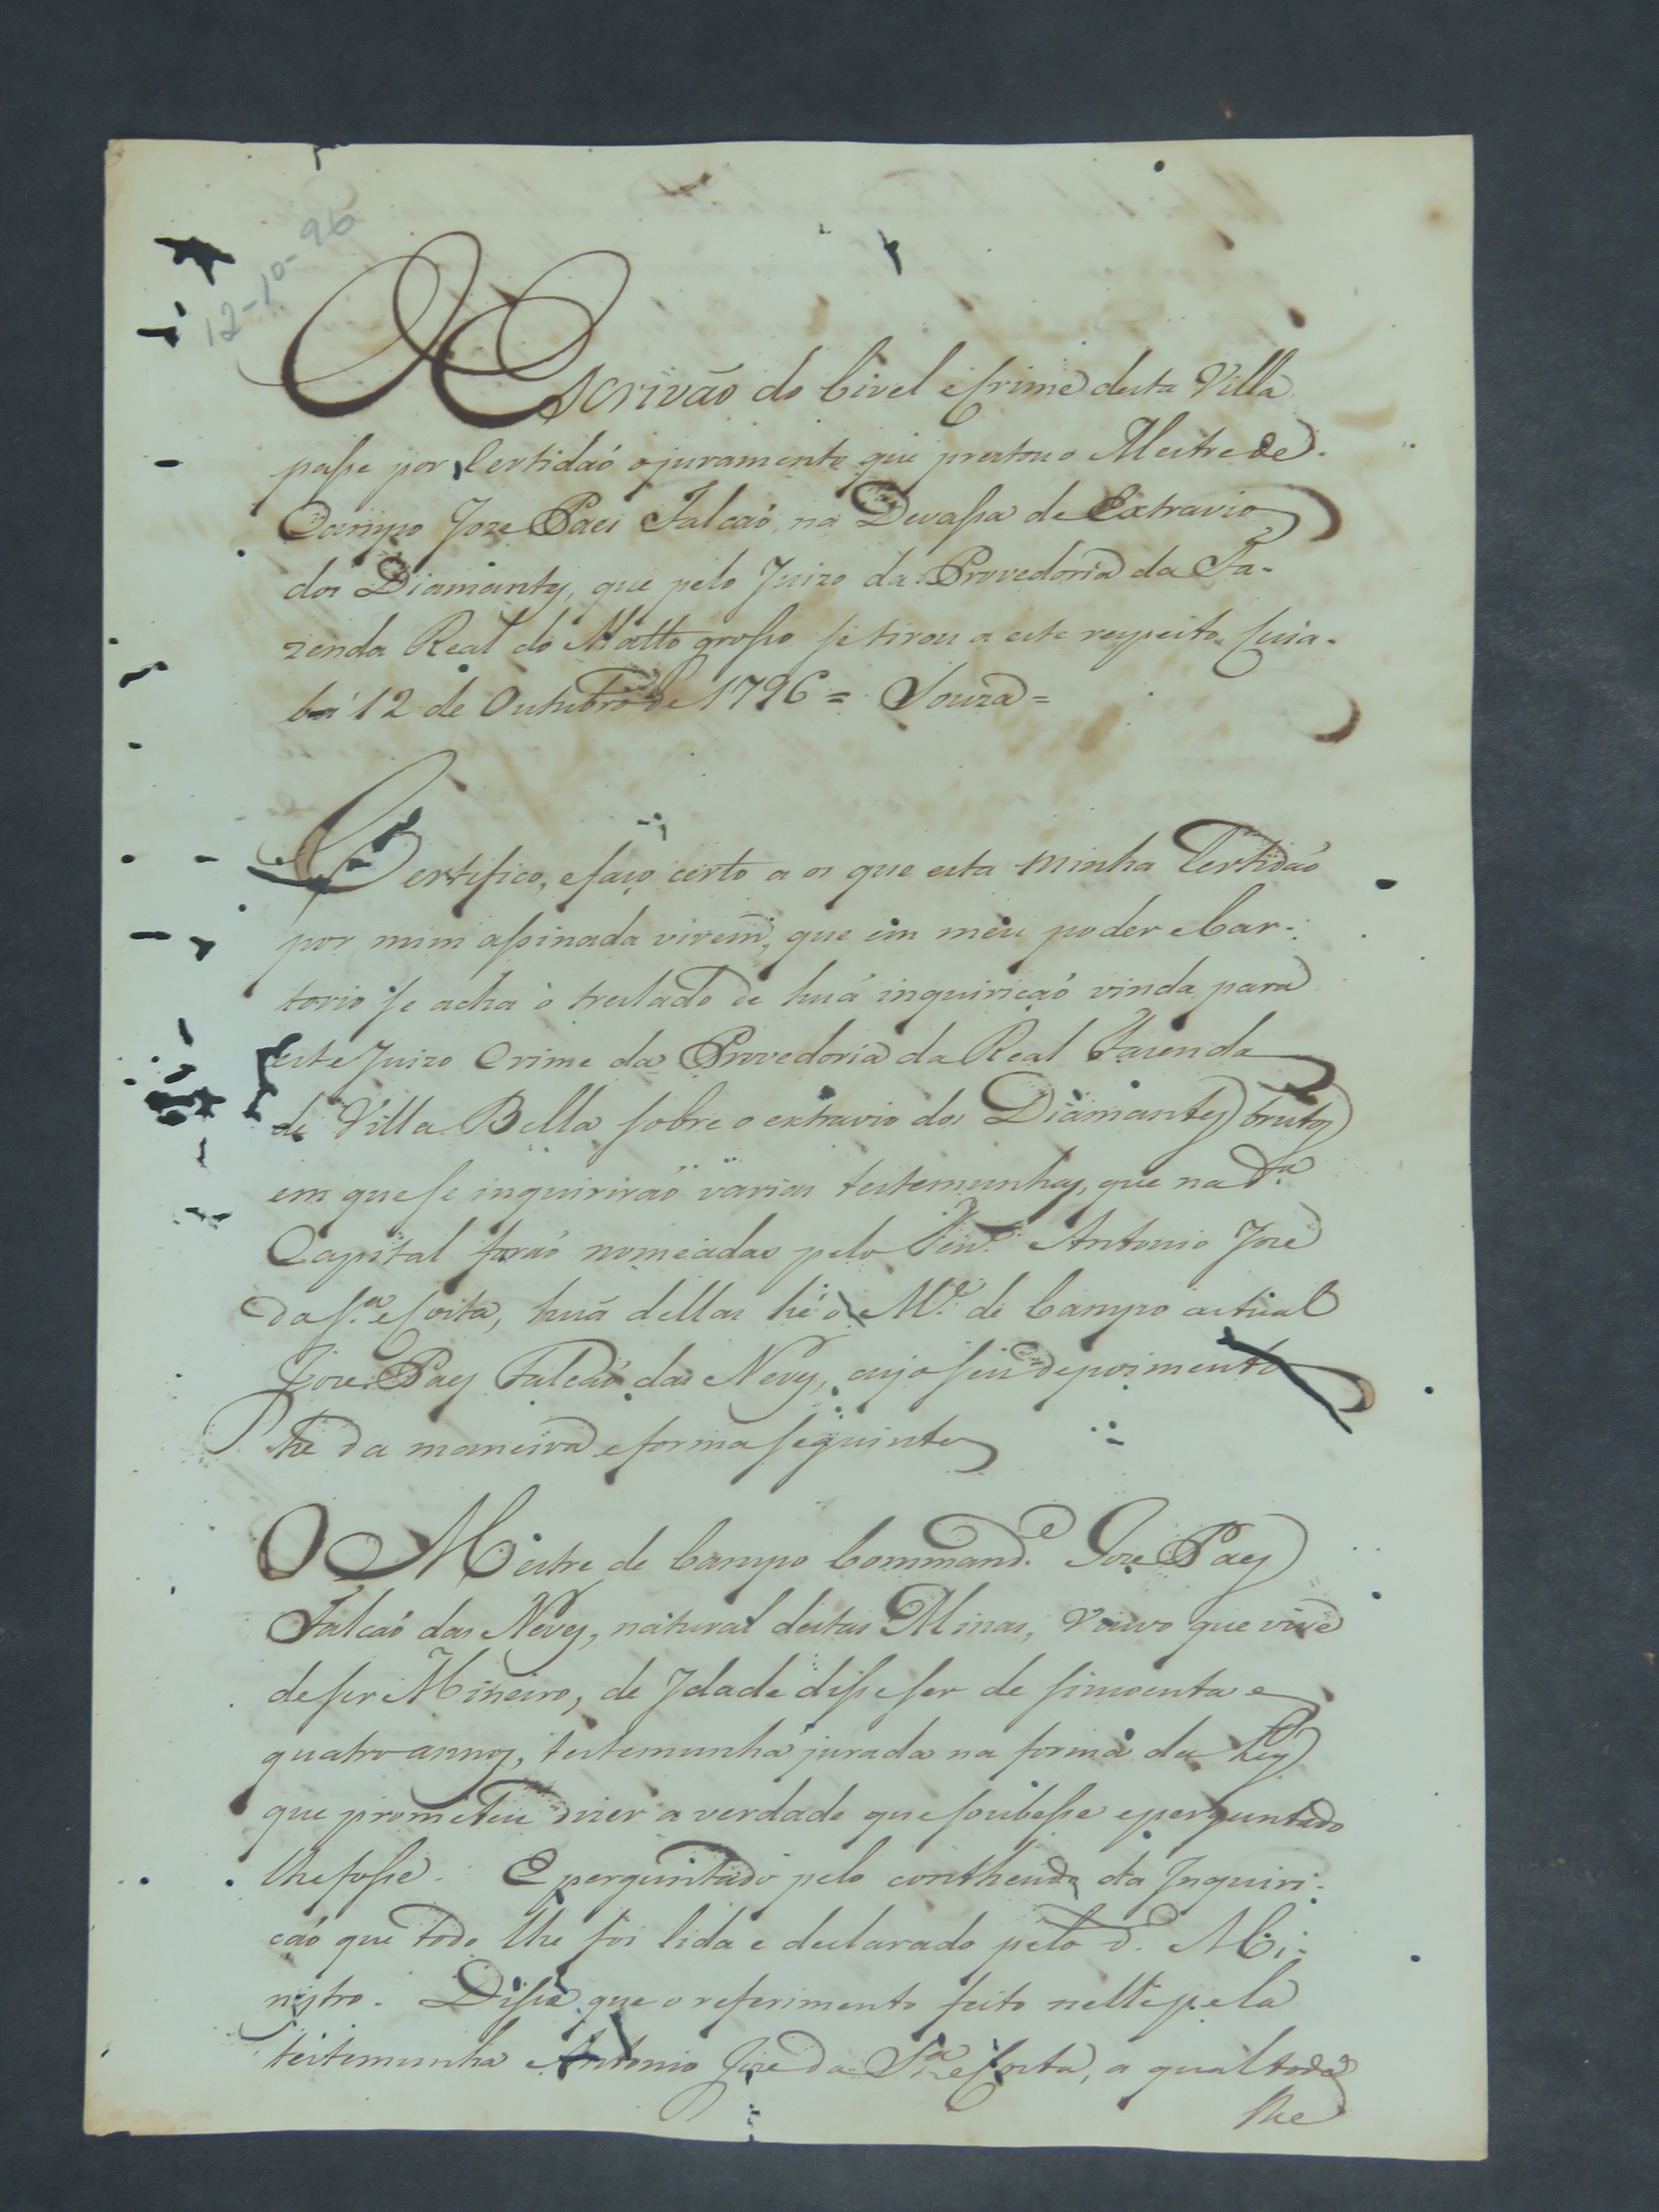 12-10-96
O Escrivão do Civel e Crime desta Villa
passe por Certidaõ o juramento que prestou o Mestre de
Campo Joze Paes Falcaõ, na Devassa de Extravio
dos Diamantes, que pelo Juizo da Provedoria da Fa-
zenda Real do Matto grosso se tirou a este respeito. Cuia-
bá 12 de Outubro de 1796 = Souza =
Certifico, e faço certo a os que esta minha Certidaõ
por mim assinada virem, que em meu poder e Car-
torio se acha o treslado de huã inquiriçaõ vinda para
este Juizo Crime da Provedoria da Real Fazenda
de Villa Bella sobre o extravio dos Diamantes brutos
em que se inquiriraõ varias testemunhas, que na d.ª
Capital foraõ nomeadas pelo Ten.e Antonio Joze
da S.ª e Costa, huã dellas hé o M.e de Campo actual
Joze Paes Falcaõ das Neves, cujo seu depoimento
he da maneira e forma seguinte
O Mestre de Campo Command.e Joze Paes
Falcaõ das Neves, natural destas Minas, Viuvo que vive
de ser Mineiro, de Idade disse ser de sincoenta e
quatro annos, testemunha jurada na forma da Ley
que prometeu dizer a verdade que soubesse e perguntado
lhe fosse. E perguntado pelo contheudo da Inquiri-
çaõ que todo lhe foi lida e declarado pelo d.º Mi-
nistro. Disse que o referimento feito nelle pela
testemunha Antonio Joze da S.ª e Costa, a qual todo
lhe